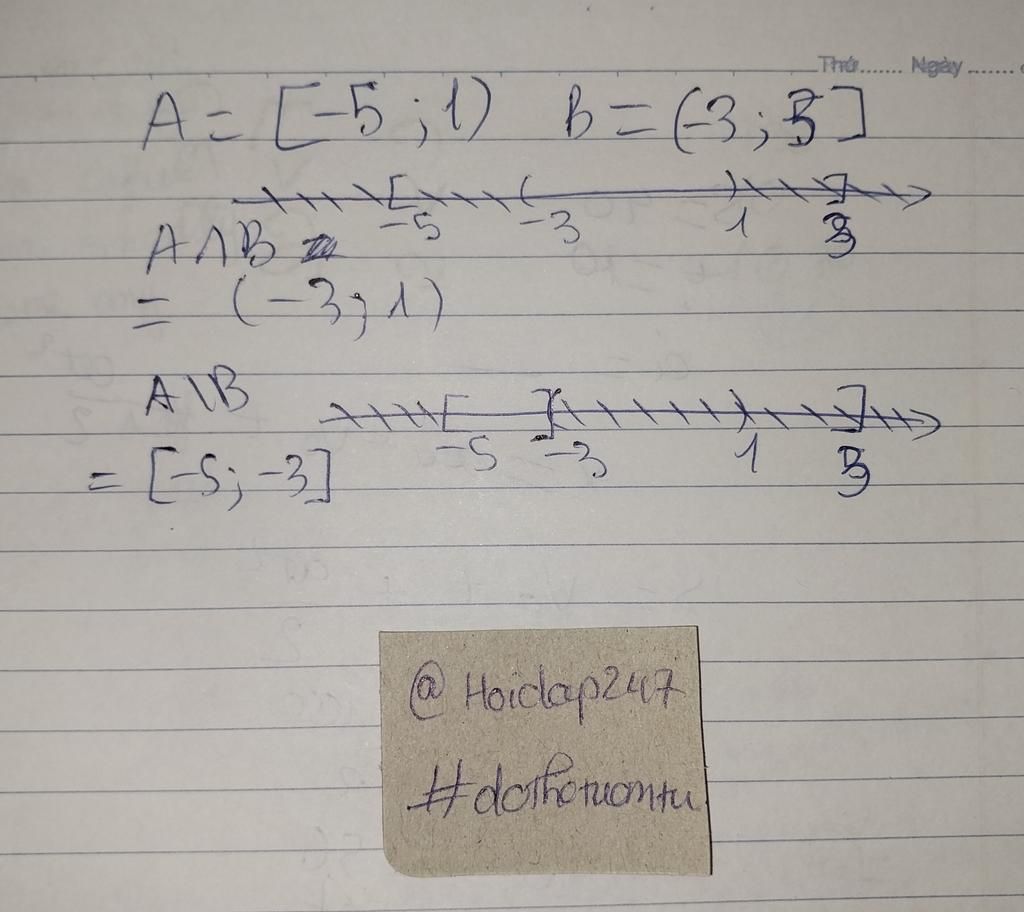 Thứ....... Ngày.......
A = [-5 ; 1) B = (-3 ; 3]
-5 -3 1 3
A∩B
= (-3 ; 1)
A\B
-5 -3 1 3
= [-5; -3]
@Hoidap247
#dothotuomtu